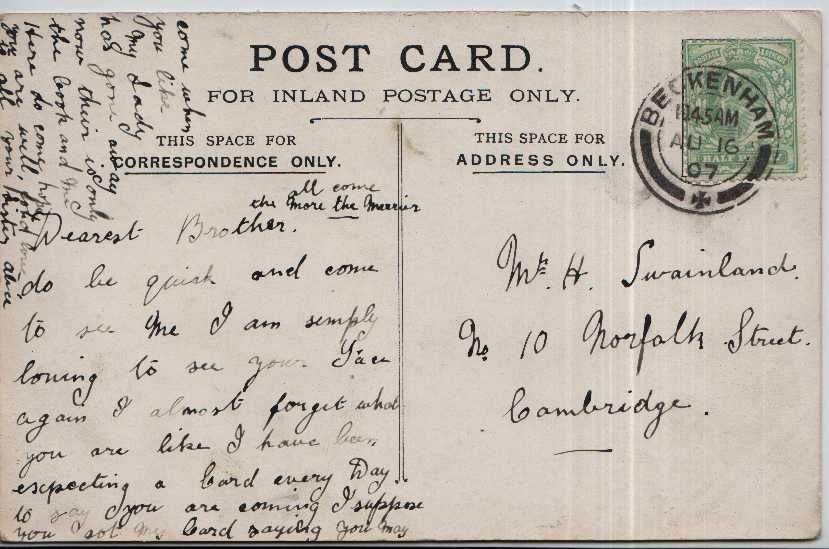 POST CARD.
FOR INLAND POSTAGE ONLY.
THIS SPACE FOR
CORRESPONDENCE ONLY.
THIS SPACE FOR
ADDRESS ONLY.
BECKENHAM
1045AM
AU 16
07
HALF
Mr. H. Swainland.
No 10 Norfolk Street.
Cambridge.
all come
the More the Merrier
Dearest Brother.
do be quick and come
to see Me I am simply
loning to see your Face
again I almost forget what
you are like I have been
expecting a Card every Day
to say you are coming I suppose
you got My Card saying you may
come when
you like
My Lady
has gone away
now their is only
the Cook and Me
Here do come hope
you are well, fond love
to all your sister Alice